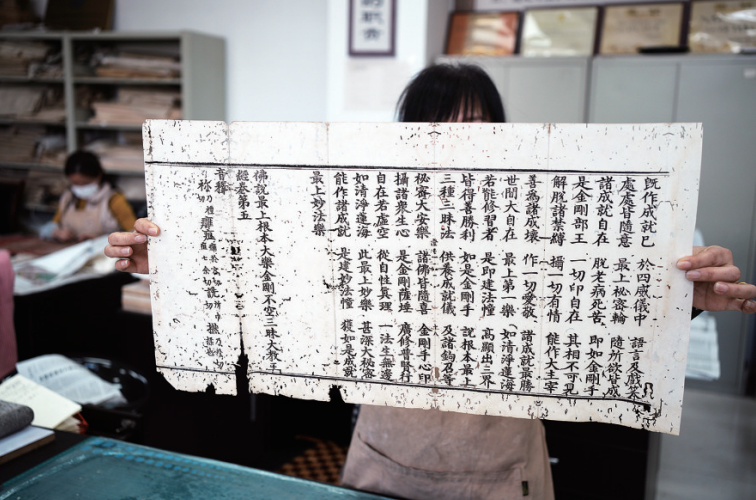 既作成就已 於四威儀中 語言及戲笑
處處皆隨意 最上秘密輪 隨所欲皆成
諸成就自在 脫老病死苦 即如金剛手
是金剛部王 一切印自在 其相不可見
解脫諸禁縛 攝一切有情 能作大主宰
善為諸成就 作一切愛敬 諸成就最勝
世間大自在 最上第一樂 如清淨蓮海
若能 習者 是即建法幢 高顯出三界
皆得善勝利 如是金剛手 說根本最上
三種三昧法 供養成就儀 及諸鈎召等
秘密大安樂 諸佛皆隨喜 金剛手心印
攝諸眾生心 是金剛薩埵 廣修普賢行
自在若虛空 從自性真理 一法生無邊
如清淨蓮海 此最上妙樂 甚深大秘密
能作諸成就 是建妙法幢 獲如是成就
最上妙法樂
佛說最上根本大樂金剛不空三昧大教王
經卷第五
音釋